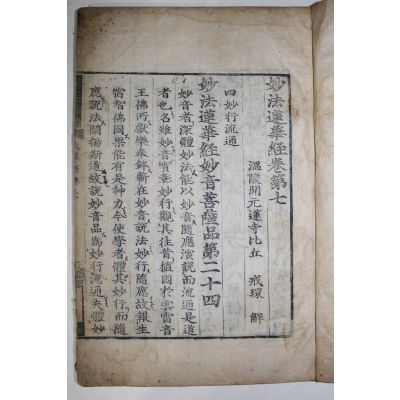 妙法蓮華經卷第七
溫陵開元蓮寺比丘 戒環 解
四妙行流通
妙法蓮華經妙音菩薩品第二十四
妙音者深體妙法能以妙音隨應演說而流通是道
者也名雖妙音實彰妙行觀其往昔植因於雲雷音
王佛所獻樂奉鉢斬在妙音說法妙行隨應故報生
宿智佛國果能有是神力令使學者體其妙行而隨
應說法闡揚斯道故說妙音品為妙行流通夫體妙